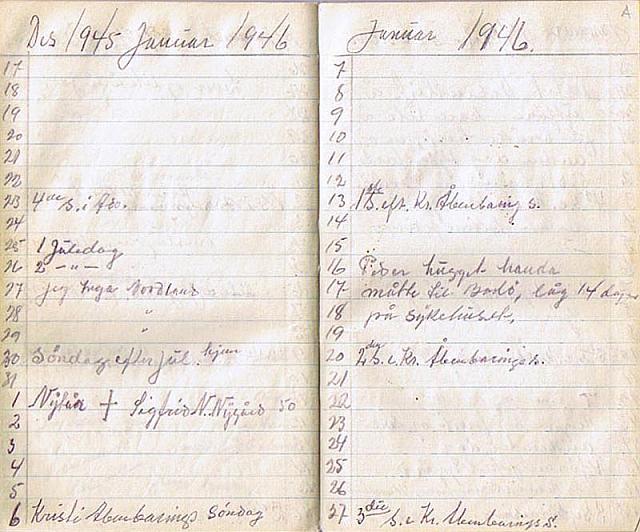 Des 1945 Januar 1946
17
18
19
20
21
22
23 4de S. i Adv.
24
25 1 Juledag
26 2 — " —
27 jeg Inga Nordland
28 "
29 "
30 Søndag efter jul. hjem
31
1 Nyttår + Sigfrid N. Nygård 50
2
3
4
5
6 Kristi Åbenbarings Søndag
Januar 1946.
A
7
8
9
10
11
12
13 1ste S. eft. Kr. Åbenbaring s.
14
15
16 Peder hugget handa
17 måtte til Bodø, låg 14 dage
18 på sykehuset,
19
20 2den S. e Kr. Åbenbarings s.
21
22
23
24
25
26
27 3die S. e Kr. Åbenbarings S.